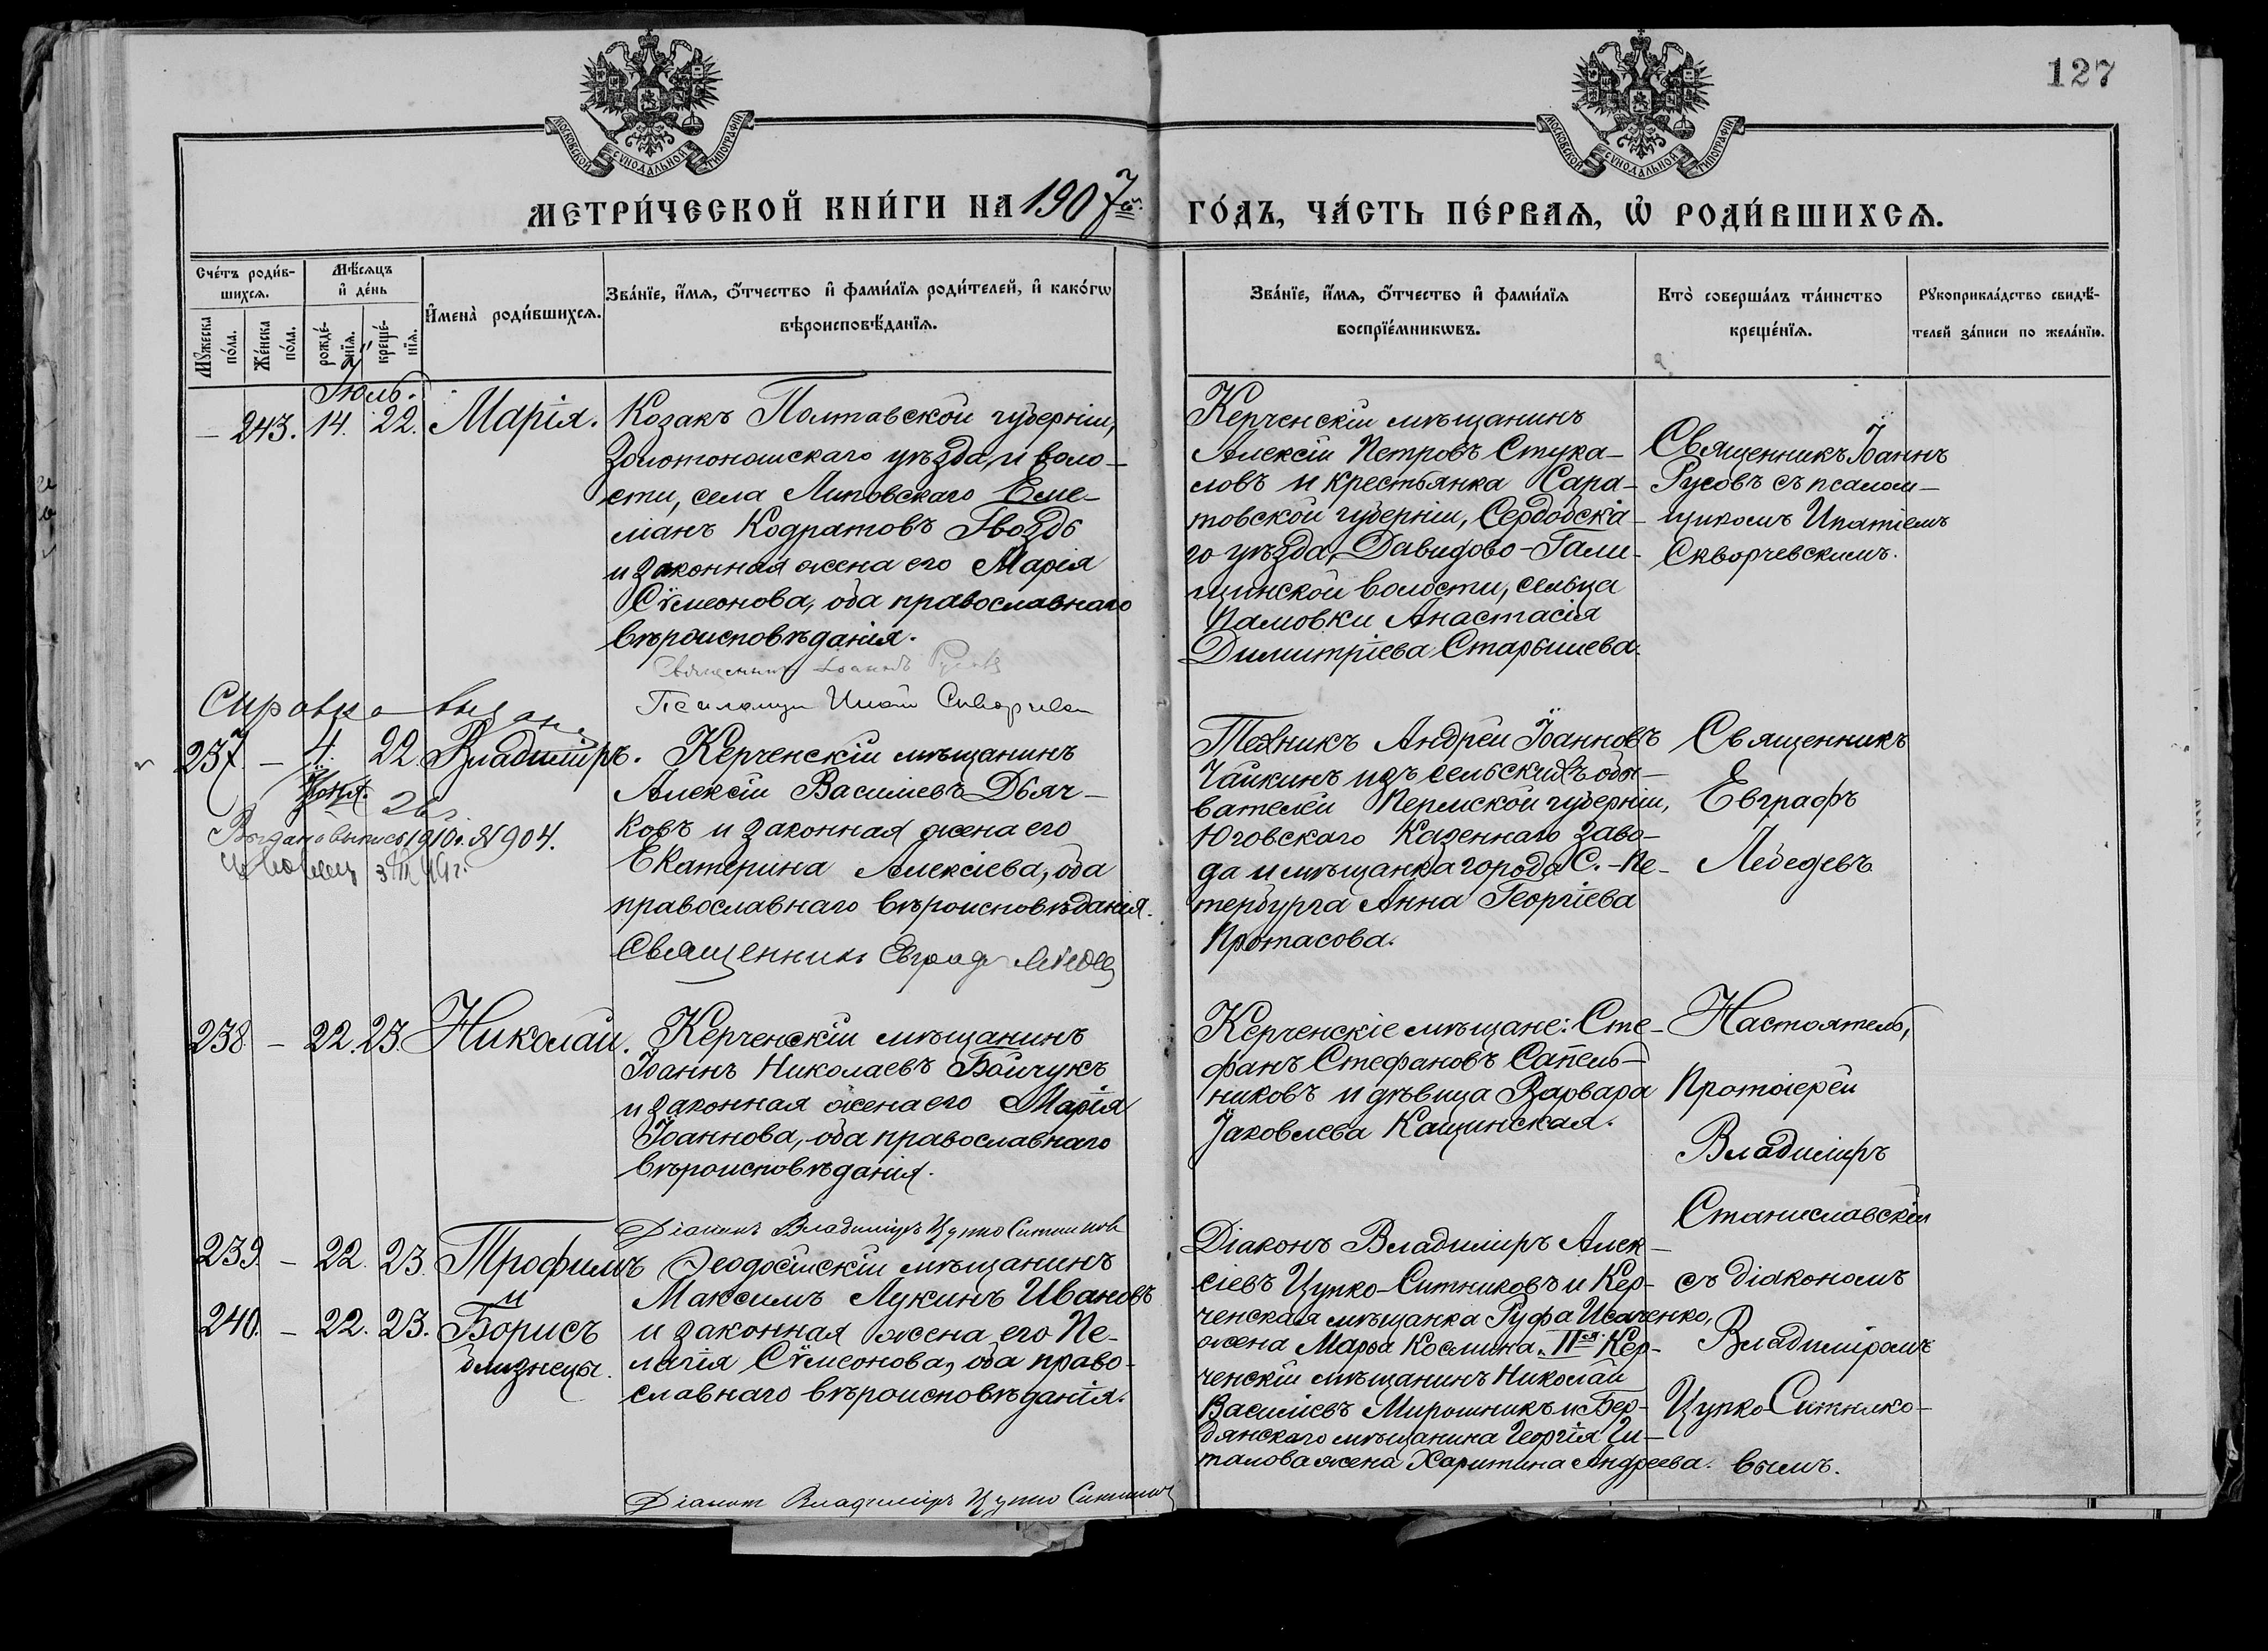 127
МОСКОВСКОЙ СѴНОДАЛЬНОЙ ТИПОГРАФІИ
МОСКОВСКОЙ СѴНОДАЛЬНОЙ ТИПОГРАФІИ
МЕТРИ́ЧЕСКОЙ КНИ́ГИ НА 1907й.
ГО́ДЪ, ЧА́СТЬ ПЕ́РВАѦ, Ѡ҆ РОДИ́ВШИХСѦ.
Сче́тъ роди́в-
шихсѧ.
Мꙋ́жеска
по́ла.
Же́нска
по́ла.
Мѣ́сѧцъ
и҆ де́нь
рожде́-
нїѧ.
креще́-
нїѧ.
И҆мена̀ роди́вшихсѧ.
Зва́нїе, и҆́мѧ, ѻ҆́тчество и҆ фами́лїѧ роди́телей, и҆ како́гѡ
вѣроисповѣ́данїѧ.
Зва́нїе, и҆́мѧ, ѻ҆́тчество и҆ фами́лїѧ
воспрїе́мникѡвъ.
Кто̀ соверша́лъ та́инство
креще́нїѧ.
Рꙋкоприкла́дство свидѣ́-
телей за́писи по жела́нїю.
Іюль.
– 243. 14. 22. Марія.
Козакъ Полтавской губерніи,
Золотоношскаго уѣзда и воло-
сти, села Липовскаго Еме-
ліанъ Кодратовъ Гвоздь
и законная жена его Марія
Сѵмеонова, оба православнаго
вѣроисповѣданія.
Священникъ Іоаннъ Русовъ
Керченскій мѣщанинъ
Алексій Петровъ Стука-
ловъ и крестьянка Сара-
товской губерніи, Сердобска-
го уѣзда, Давидово-Гали-
цинской волости, сельца
Памовки Анастасія
Димитріева Старышева.
Священникъ Іоаннъ
Русовъ съ псалом-
щикомъ Ипатіемъ
Скворчевскимъ.
Справка выдана
237. – 4. 22. Владиміръ.
Іюня.
26
Выдана выпись 1910 г. № 904.
Керченскій мѣщанинъ
Алексій Василіевъ Дьяч-
ковъ и законная жена его
Екатерина Алексіева, оба
православнаго вѣроисповѣданія.
Священникъ Евграфъ Лебедев
Техникъ Андрей Іоанновъ
Чайкинъ изъ сельскихъ обы-
вателей Пермской губерніи,
Юговскаго Казеннаго заво-
да и мѣщанка города С.-Пе-
тербурга Анна Георгіева
Протасова.
Священникъ
Евграфъ
Лебедевъ
238. – 22. 23. Николай.
Керченскій мѣщанинъ
Іоаннъ Николаевъ Бойчукъ
и законная жена его Марія
Іоаннова, оба православнаго
вѣроисповѣданія.
Діаконъ Владиміръ Цупко Ситников
Керченскіе мѣщане: Сте-
фанъ Стефановъ Сапель-
никовъ и дѣвица Варвара
Іаковлева Кащинская.
Настоятель,
Протоіерей
Владиміръ
Станиславскій
съ діакономъ
Владиміромъ
Цупко-Ситнико-
вымъ.
239. – 22. 23. Трофимъ
и
240. – 22. 23. Борисъ
близнецы.
Ѳеодосійскій мѣщанинъ
Максимъ Лукинъ Ивановъ
и законная жена его Пе-
лагія Сѵмеонова, оба право-
славнаго вѣроисповѣданія.
Діаконъ Владиміръ Цупко Ситников
Діаконъ Владиміръ Алек-
сіевъ Цупко-Ситниковъ и Кер-
ченская мѣщанка Руфа Исаченко,
жена Марѳа Космина. IIя Кер-
ченскій мѣщанинъ Николай
Василіевъ Мирошникъ и Бер-
дянскаго мѣщанина Георгія Ги-
талова жена Харитина Андреева.